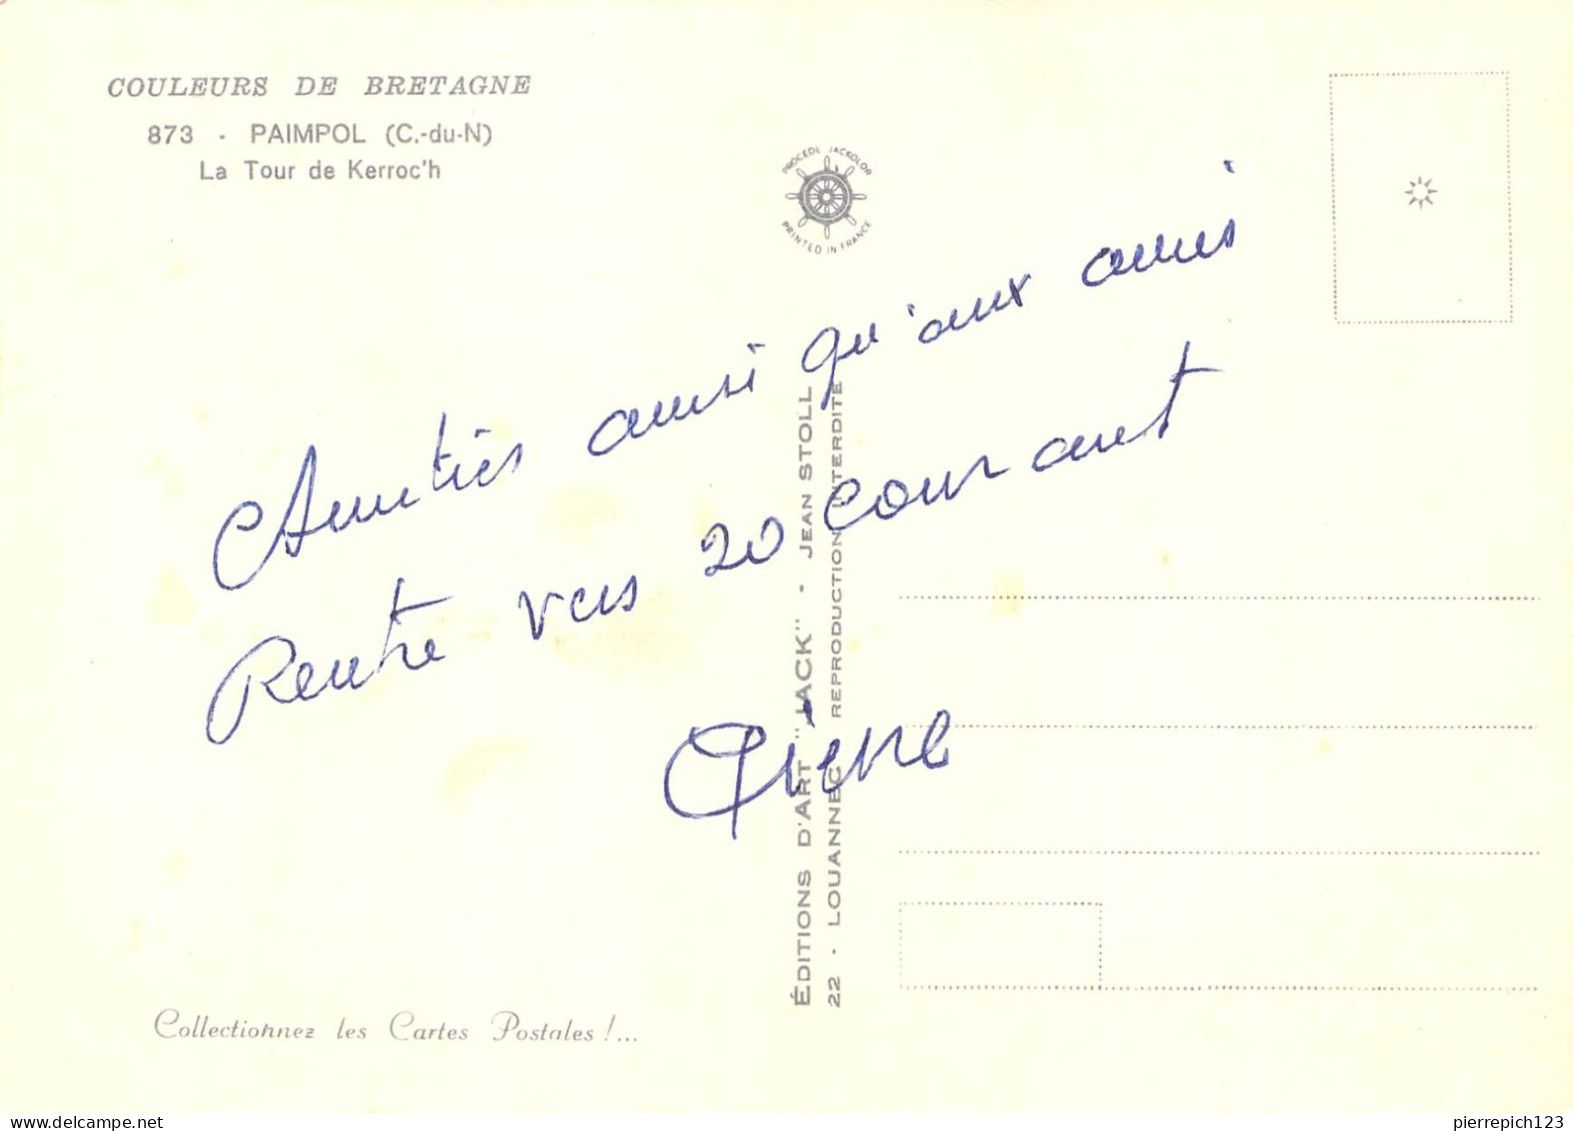 COULEURS DE BRETAGNE
873 - PAIMPOL (C.-du-N)
La Tour de Kerroc'h
PROCÉDÉ JACKOLOR
PRINTED IN FRANCE
Amitiés ainsi qu'aux amis
Rentre vers 20 courant
ÉDITIONS D'ART "JACK" - JEAN STOLL
22 - LOUANNEC REPRODUCTION INTERDITE
Collectionnez les Cartes Postales !...
pierrepich123